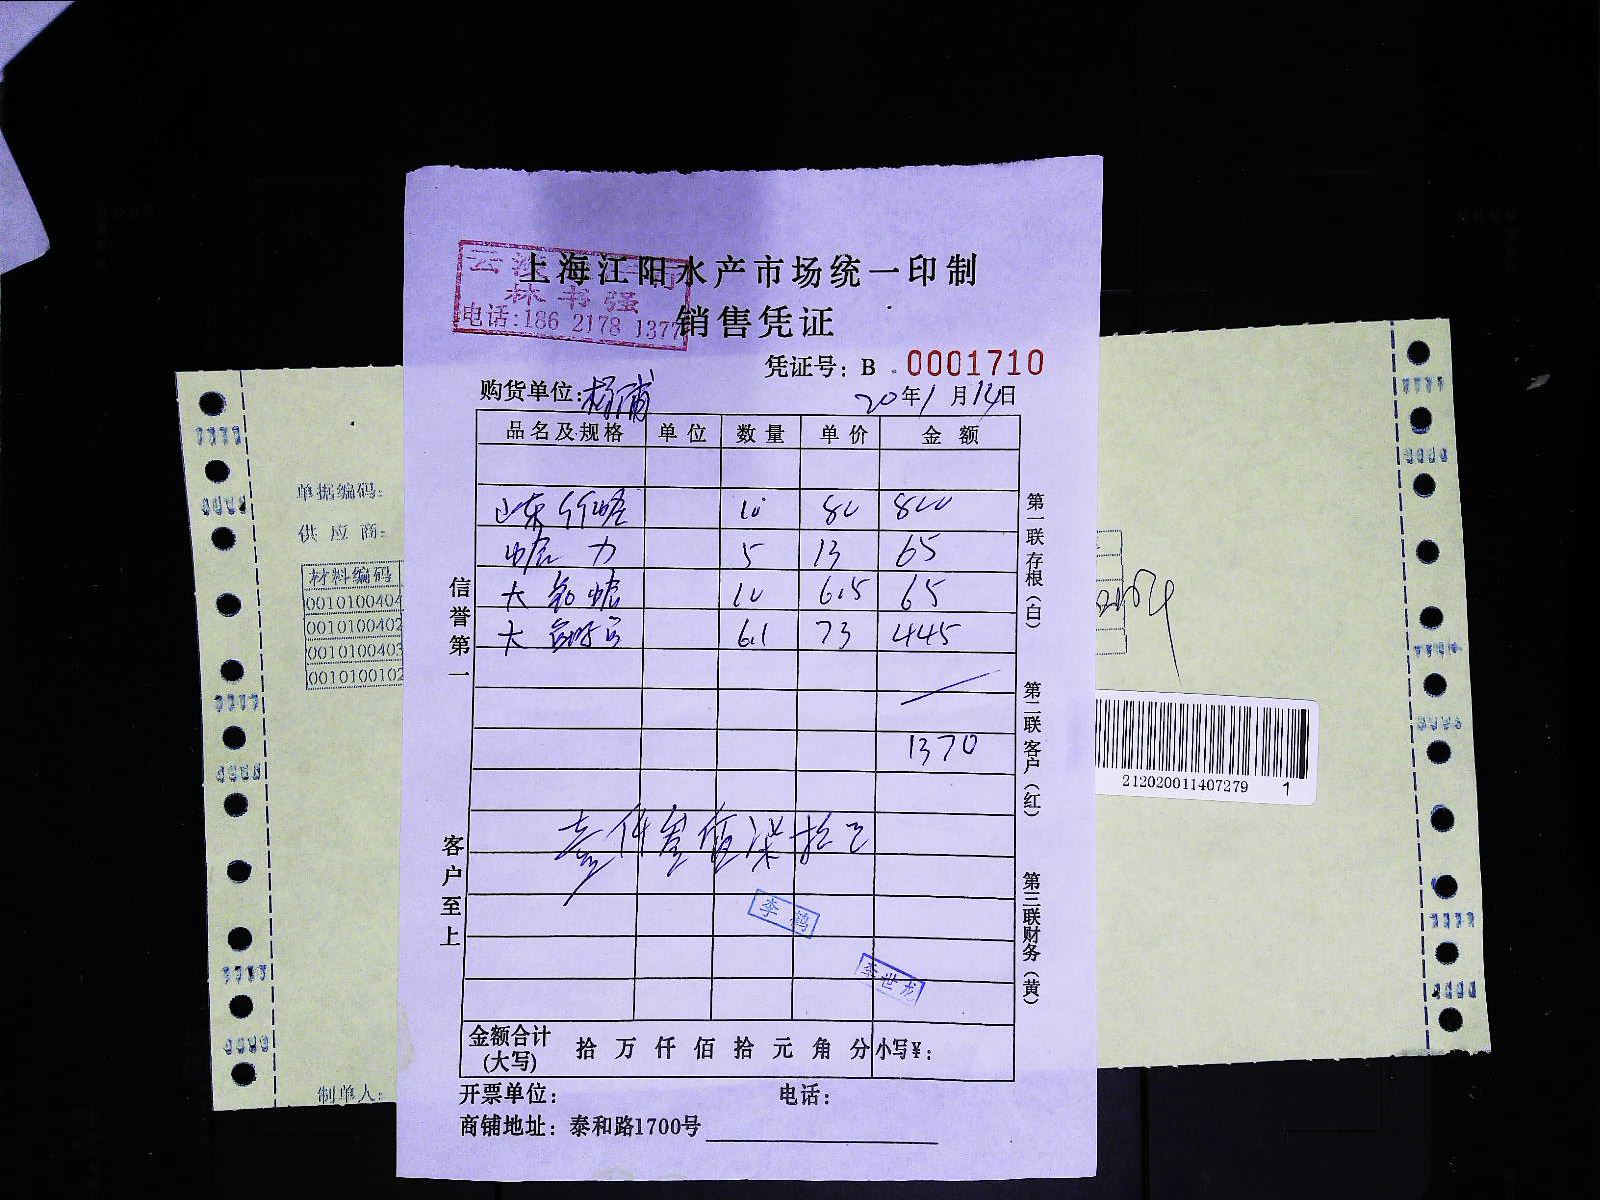 上海江阳水产市场统一印制
林书强
电话:186 2178 1377
销售凭证
凭证号: B 0001710
购货单位: 杨浦
20年1月14日
品名及规格 单位 数量 单价 金额
山东 10 80 800
力 5 13 65
大 10 6.5 65
大 6.1 73 445
1370
壹仟叁佰柒拾元
李鹤
李世龙
金额合计(大写) 拾 万 仟 佰 拾 元 角 分 小写¥:
开票单位: 电话:
商铺地址: 泰和路1700号
信誉第一
客户至上
第一联存根(白)
第二联客户(红)
第三联财务(黄)
单据编码:
供应商:
材料编码
0010100404
0010100402
0010100403
0010100102
制单人:
212020011407279 1